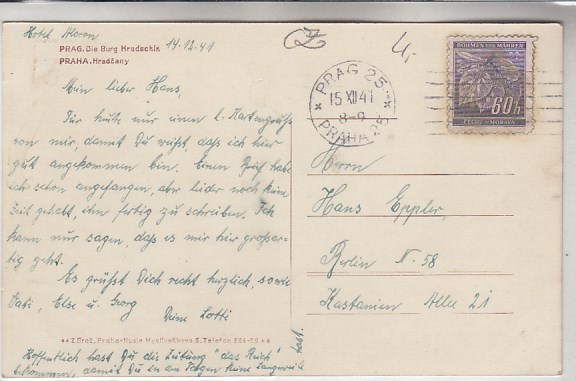 Hotel Alcron
14.12.41
PRAG. Die Burg Hradschin
PRAHA. Hradčany
Mein lieber Hans,
Für heute nur einen l. Kartengruß
von mir, damit Du weißt, daß ich hier
gut angekommen bin. Einen Brief habe
ich schon angefangen, aber leider noch keine
Zeit gehabt, ihn fertig zu schreiben. Ich
kann nur sagen, daß es mir hier großar-
tig geht.
Es grüßt Dich recht herzlich, sowie
Vati, Else u. Georg
Deine Lotti
Hoffentlich hast Du die Zeitung "das Reich"
bekommen, damit Du in den Tagen keine Langeweile
hast.
Praha-Nusle
Telefon
BÖHMEN UND MÄHREN
60 h
ČECHY A MORAVA
PRAG 25
15 XII 41
8-9
PRAHA 25
Herrn
Hans Eppler,
Berlin N. 58
Kastanien Allee 21